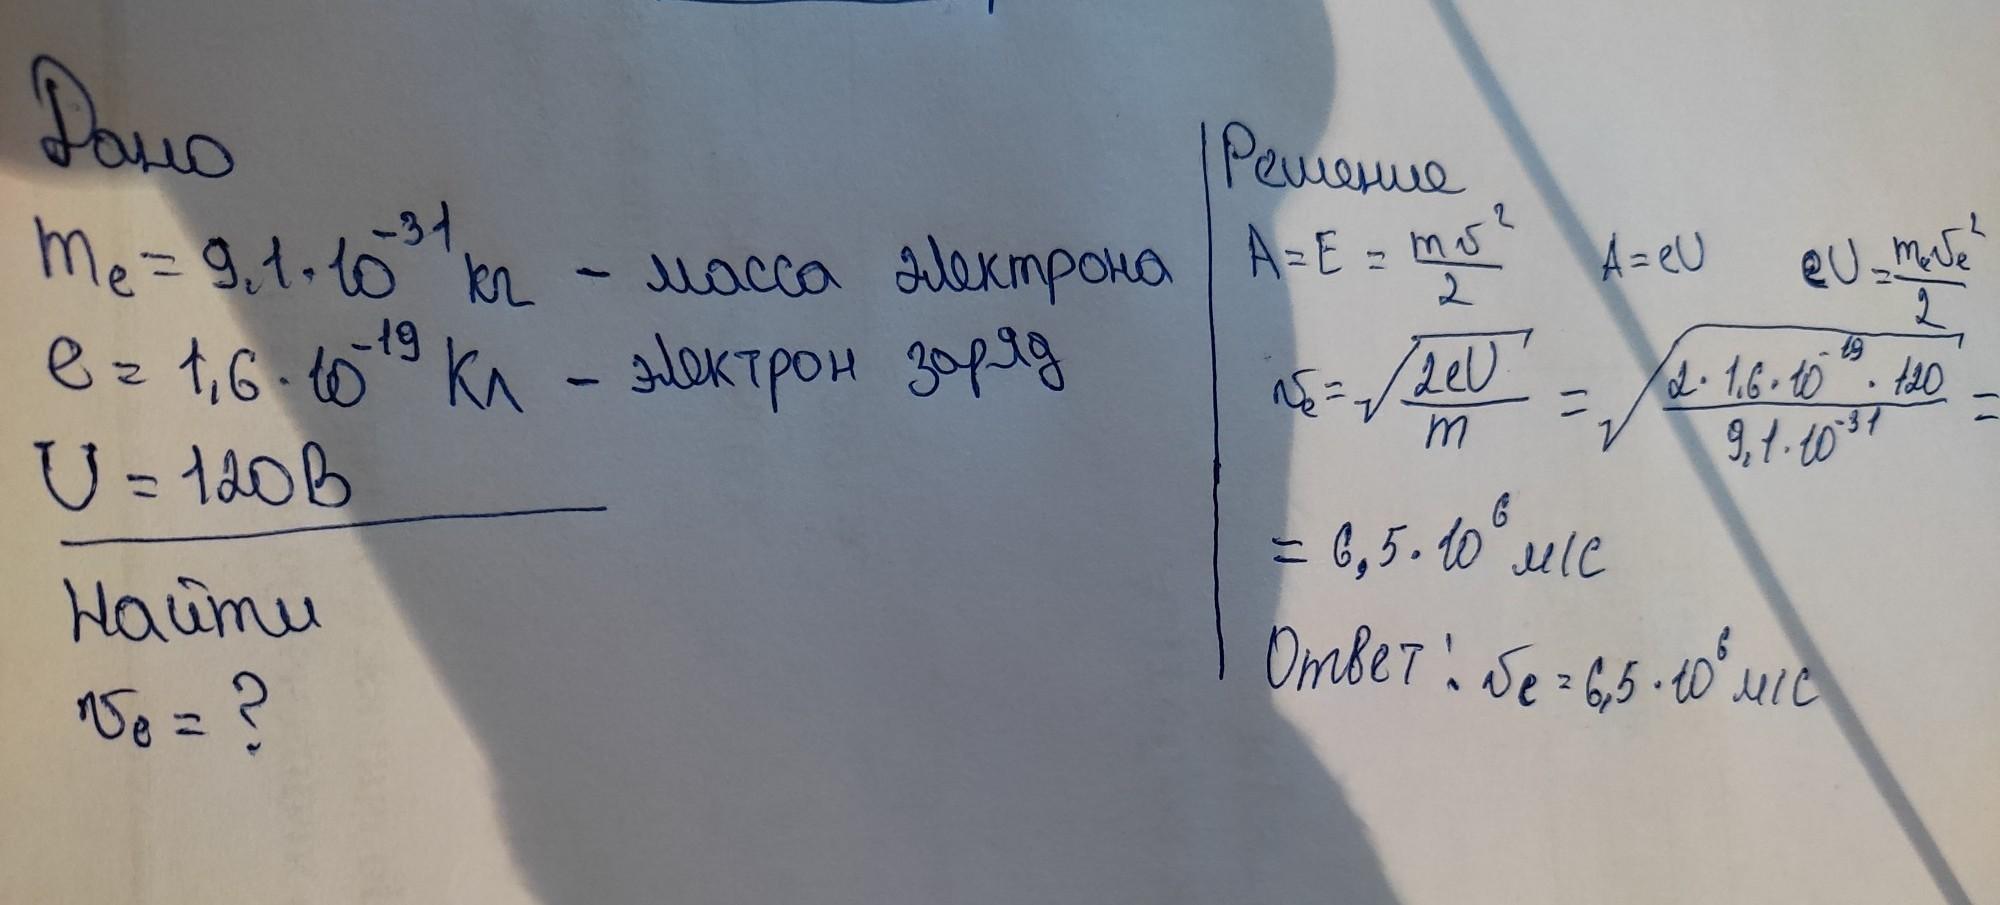 Дано
mₑ = 9,1·10⁻³¹ кг – масса электрона
e = 1,6·10⁻¹⁹ Кл – электрон заряд
U = 120В
Найти
υₑ = ?
Решение
A = E = mυ²/2 A = eU eU = mₑυₑ²/2
υₑ = √(2eU/m) = √(2·1,6·10⁻¹⁹·120/9,1·10⁻³¹) =
= 6,5·10⁶ м/с
Ответ: υₑ = 6,5·10⁶ м/с